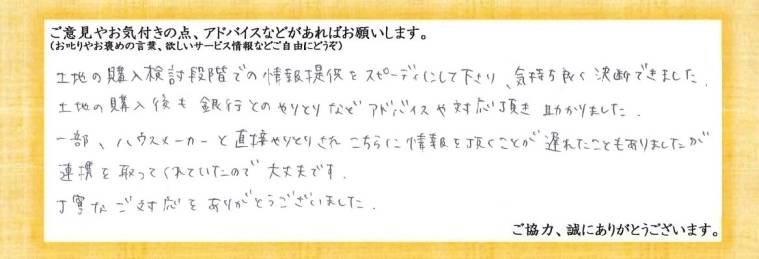 ご意見やお気付きの点、アドバイスなどがあればお願いします。
(お叱りやお褒めの言葉、欲しいサービス情報などご自由にどうぞ)
土地の購入検討段階での情報提供をスピーディにして下さり、気持ち良く決断できました。
土地の購入後も銀行とのやりとりなどアドバイスや対応頂き助かりました。
一部、ハウスメーカーと直接やりとりされこちらに情報を頂くことが遅れたこともありましたが
連携を取ってくれていたので大丈夫です。
丁寧なご対応をありがとうございました。
ご協力、誠にありがとうございます。